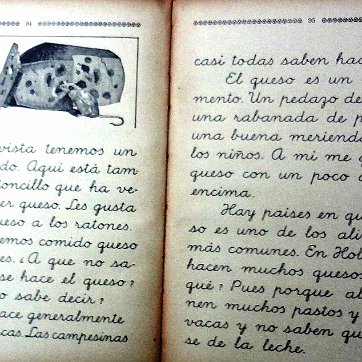 94
vista tenemos un
do. Aquí está tam
toncillo que ha ve-
er queso. Les gusta
ueso a los ratones.
emos comido queso
es. ¿A que no sa-
se hace el queso?
o sabe decir?
ace generalmente
cas. Las campesinas
95
casi todas saben hac
El queso es un
mento. Un pedazo de
una rabanada de p
una buena meriend
los niños. A mí me g
queso con un poco d
encima.
Hay países en q
so es uno de los ali
más comunes. En Hol
hacen muchos queso
qué? Pues porque al
nen muchos pastos y
vacas y no saben qu
se de la leche.